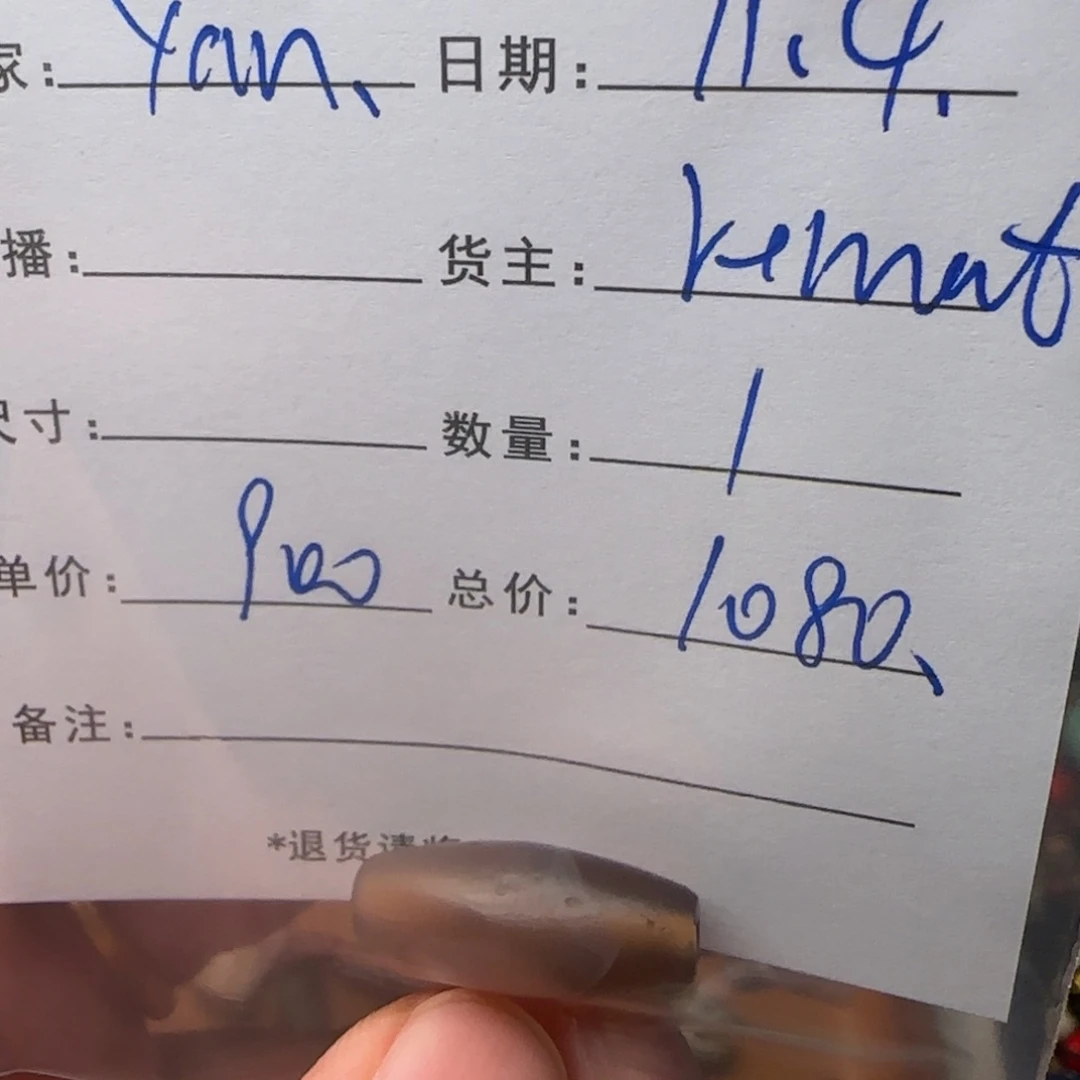 家: Yan、 日期: 11.4.
播: 货主:
尺寸: 数量: 1
单价: 900 总价: 1080、
备注:
*退货请